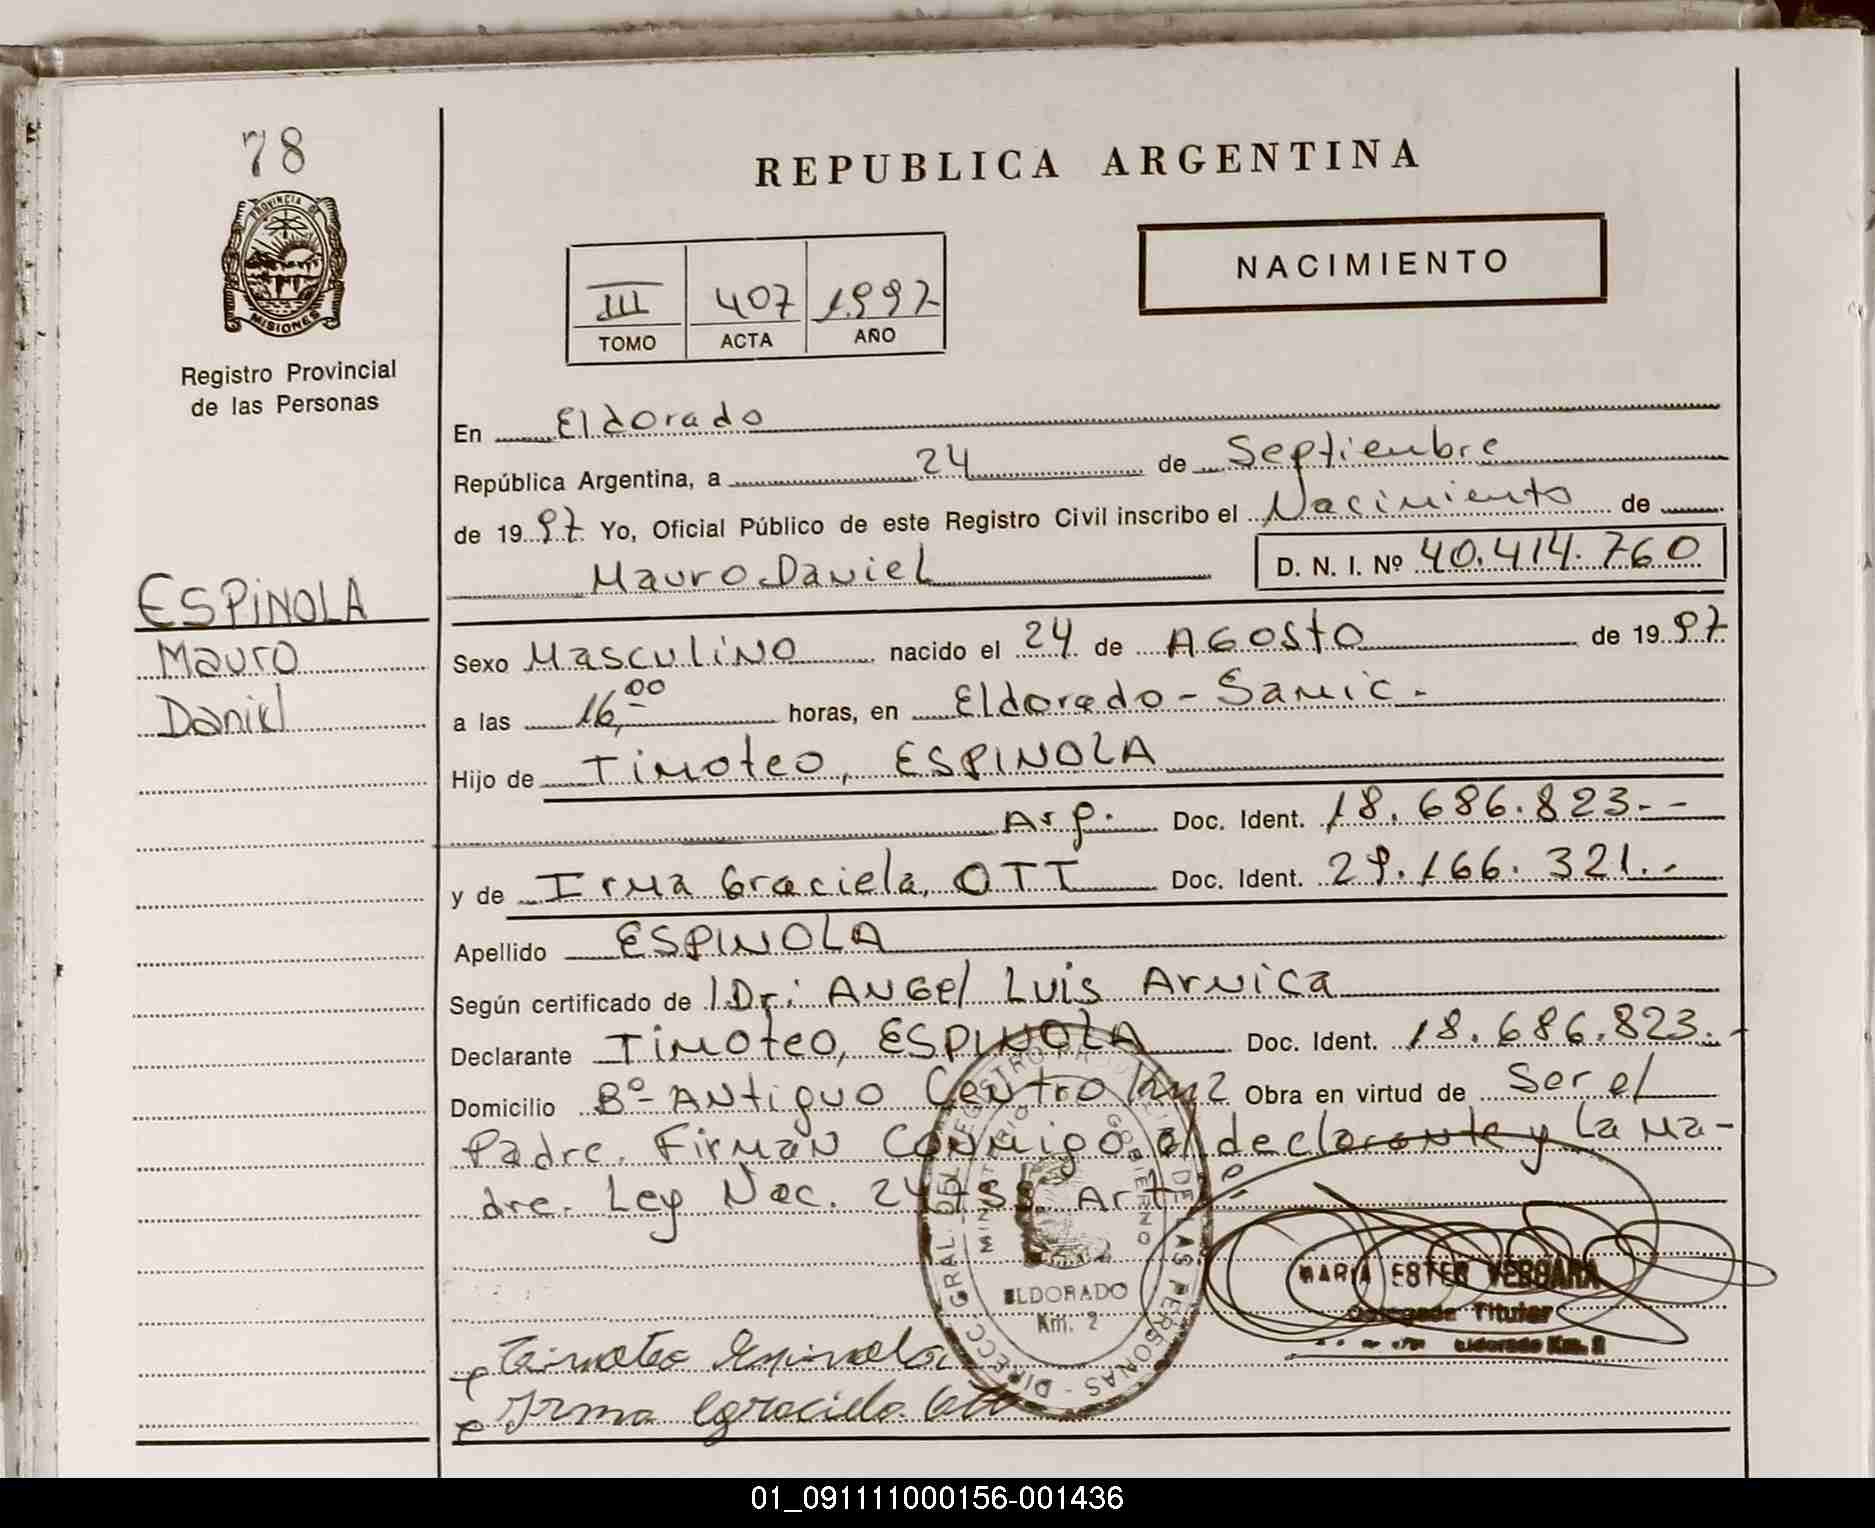 78
REPUBLICA ARGENTINA
PROVINCIA DE
MISIONES
NACIMIENTO
III 407 1997
TOMO ACTA AÑO
Registro Provincial
de las Personas
En Eldorado
República Argentina, a 24 de Septiembre
de 1997 Yo, Oficial Público de este Registro Civil inscribo el Nacimiento de
Mauro Daniel D. N. I. Nº 40.414.760
ESPINOLA
Mauro
Daniel
Sexo Masculino nacido el 24 de Agosto de 1997
a las 16,00 horas, en Eldorado - Samic.-
Hijo de Timoteo, ESPINOLA
Arg. Doc. Ident. 18.686.823.--
y de Irma Graciela, OTT Doc. Ident. 29.166.321.-
Apellido ESPINOLA
Según certificado de Dr: Angel Luis Arnica
Declarante Timoteo, ESPINOLA Doc. Ident. 18.686.823.-
Domicilio Bº- Antiguo Centro km2 Obra en virtud de Ser el
Padre. Firman Conmigo el declarante y La ma-
dre. Ley Nac. Art
DIRECC. GRAL. DEL REGISTRO DE LAS PERSONAS
MINISTERIO GOBIERNO
ELDORADO
Km. 2
MARIA ESTER VERGARA
Delegada Titular
Eldorado Km. 2
Timoteo Espinola
Irma Graciela Ott
01_091111000156-001436